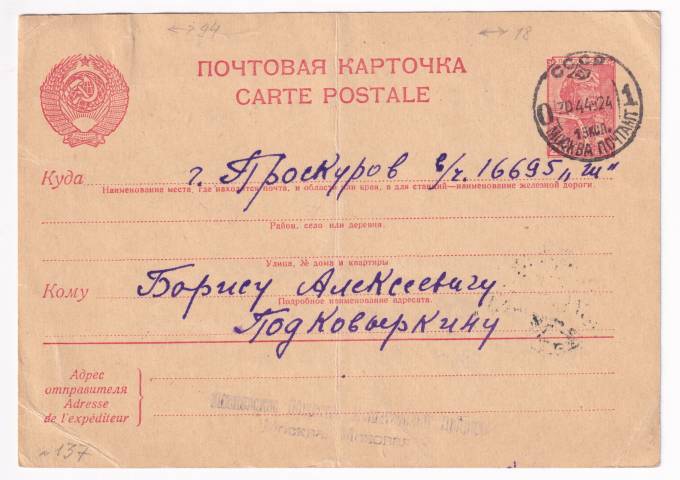 94
18
ПОЧТОВАЯ КАРТОЧКА
CARTE POSTALE
СССР
20.44-24
15 КОП.
1
МОСКВА ПОЧТАМТ
Куда г. Проскуров в/ч. 16695 „Ш"
Наименование места, где находится почта, и области или края, а для станций—наименование железной дороги.
Район, село или деревня
Улица, № дома и квартиры
Кому Борису Алексеевичу
Подробное наименование адресата.
Подковыркину
Адрес
отправителя
Adresse
de l'expéditeur
~137